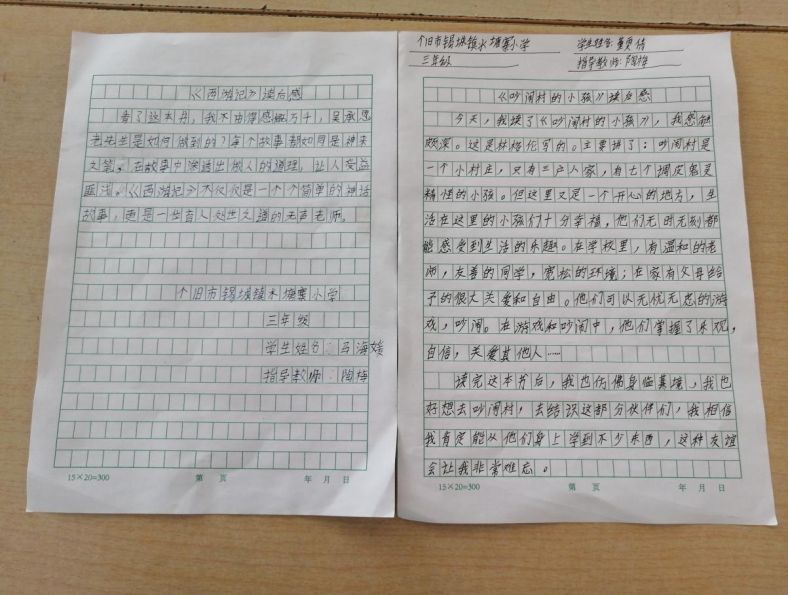 《西游记》读后感
看了这本书，我不由得感慨万千，吴承恩
老先生是如何做到的？每个故事都如同是神来
之笔。在故事中渗透出做人的道理，让人受益
匪浅。《西游记》不仅仅是一个个简单的神话
故事，更是一些育人处世之道的无声老师。
个旧市锡城镇水塘寨小学
三年级
学生姓名：马海媛
指导教师：陶梅
15×20=300 第 页 年 月 日
个旧市锡城镇水塘寨小学 学生姓名：董
三年级 指导教师：陶梅
《吵闹村的小孩》读后感
今天，我读了《吵闹村的小孩》，我感触
颇深。这是林格伦写的。主要讲了：吵闹村是
一个小村庄，只有三户人家，有七个调皮鬼灵
精怪的小孩。但这里又是一个开心的地方，生
活在这里的小孩们十分幸福，他们无时无刻都
能感受到生活的乐趣。在学校里，有温和的老
师，友善的同学，宽松的环境；在家有父母给
予的很大关爱和自由。他们可以无忧无虑的游
戏，吵闹。在游戏和吵闹中，他们掌握了乐观，
自信，关爱其他人……
读完这本书后，我也仿佛身临其境，我也
好想去吵闹村，去结识这部分伙伴们，我相信
我肯定能从他们身上学到不少东西，这种友谊
会让我非常难忘。
15×20=300 第 页 年 月 日